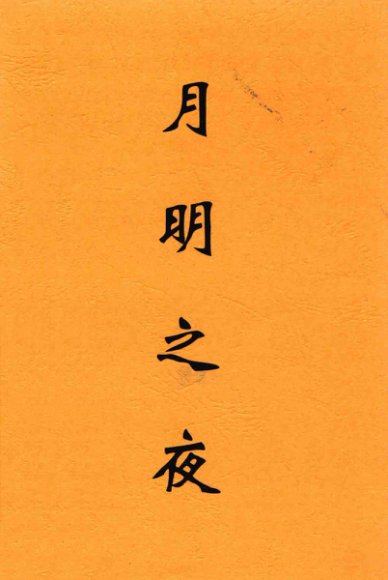 月明之夜